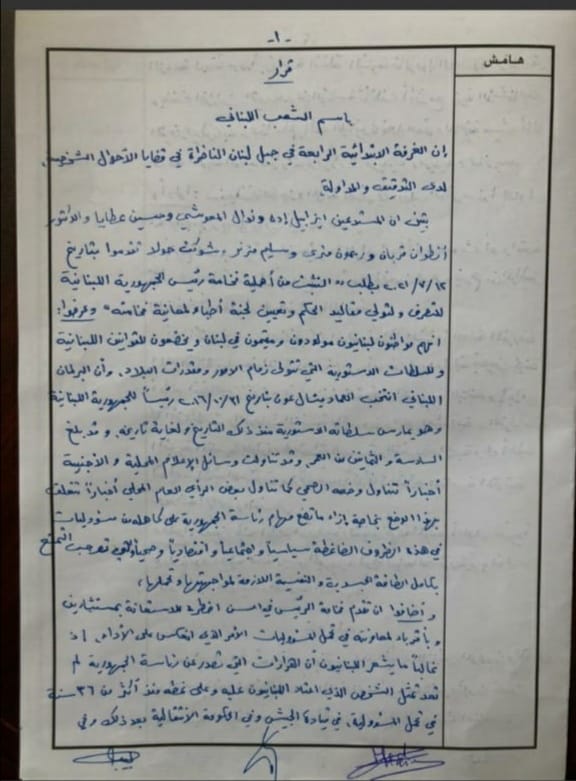 -١-
هامش
قرار
باسم الشعب اللبناني
إن الغرفة الابتدائية الرابعة في جبل لبنان الناظرة في قضايا الأحوال الشخصية
لدى التدقيق والمداولة
يتبين ان المستدعين ايزابيل إده ونوال المعوشي وحسين عطايا والدكتور
أنطوان قربان و وسليم مزنر وشوكت حولا تقدموا بتاريخ
١٢/٧/٢٠٢١ بطلب "التثبت من أهلية فخامة رئيس الجمهورية اللبنانية
للتصرف ولتولي مقاليد الحكم وتعيين لجنة أطباء لمعاينة فخامته" وعرضوا:
انهم مواطنون لبنانيون مولودون ومقيمون في لبنان ويخضعون للقوانين اللبنانية
وللسلطات الدستورية التي تتولى زمام الامور ومقدرات البلاد. وأن البرلمان
اللبناني انتخب العماد ميشال عون بتاريخ ٣١/١٠/٢٠١٦ رئيساً للجمهورية اللبنانية
وهو يمارس سلطاته الدستورية منذ ذلك التاريخ ولغاية تاريخه. وقد بلغ
السادسة والثمانين من العمر وقد تناولت وسائل الإعلام المحلية والأجنبية
أخباراً تتناول وضعه الصحي كما تناول بعض الرأي العام المحلي أخباراً تتعلق
بهذا الوضع بخاصة إزاء ما تضع مهام رئاسة الجمهورية على كاهله من مسؤوليات
في هذه الظروف الضاغطة سياسياً واجتماعياً واقتصادياً وصحياً والتي توجب التمتع
بكامل الطاقة الجسدية والنفسية اللازمة لمواجهتها وتحملها،
وأضافوا ان تقدم فخامة الرئيس في السن اضطره للاستعانة بمستشارين
وبأقرباء لمعاونته في تحمل المسؤوليات الأمر الذي انعكس على الأداء. إذ
غالباً ما يشعر اللبنانيون أن القرارات التي تصدر عن رئاسة الجمهورية لم
تعد تمثل الشخص الذي اعتاد اللبنانيون عليه وعلى نمطه منذ أكثر من ٣٦ سنة
في تحمل المسؤولية. في قيادة الجيش وفي الحكومة الانتقالية بعد ذلك وفي